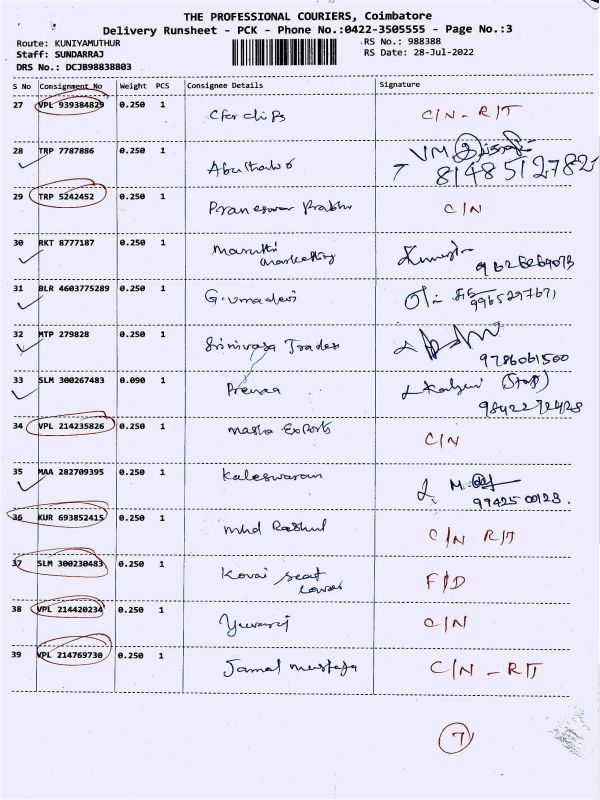 THE PROFESSIONAL COURIERS, Coimbatore
Delivery Runsheet - PCK - Phone No.:0422-3505555 - Page No.:3
Route: KUNIYAMUTHUR RS No.: 988388
Staff: SUNDARRAJ RS Date: 28-Jul-2022
DRS No.: DCJB98838803
S No Consignment No Weight PCS Consignee Details Signature
27 VPL 939384829 0.250 1 C/N - R/T
28 TRP 7787886 0.250 1 VM
8148512782
29 TRP 5242452 0.250 1 Praneswar Prabhu C/N
30 RKT 8777187 0.250 1 Maruthi
Marketting
31 BLR 4603775289 0.250 1 G. Umadevi
9965297671
32 MTP 279828 0.250 1 Srinivasa Traders
9786061500
33 SLM 300267483 0.090 1 Prenaa (Staff)
9842272428
34 VPL 214235826 0.250 1 Masha Exports C/N
35 MAA 282709395 0.250 1 Kaleswaran M.
9942500128.
36 KUR 693852415 0.250 1 Mhd Rashul C/N R/T
37 SLM 300230483 0.250 1 Kovai Seat F/D
38 VPL 214420234 0.250 1 Yuvaraj C/N
39 VPL 214769730 0.250 1 Jamal Mustafa C/N - R/T
7